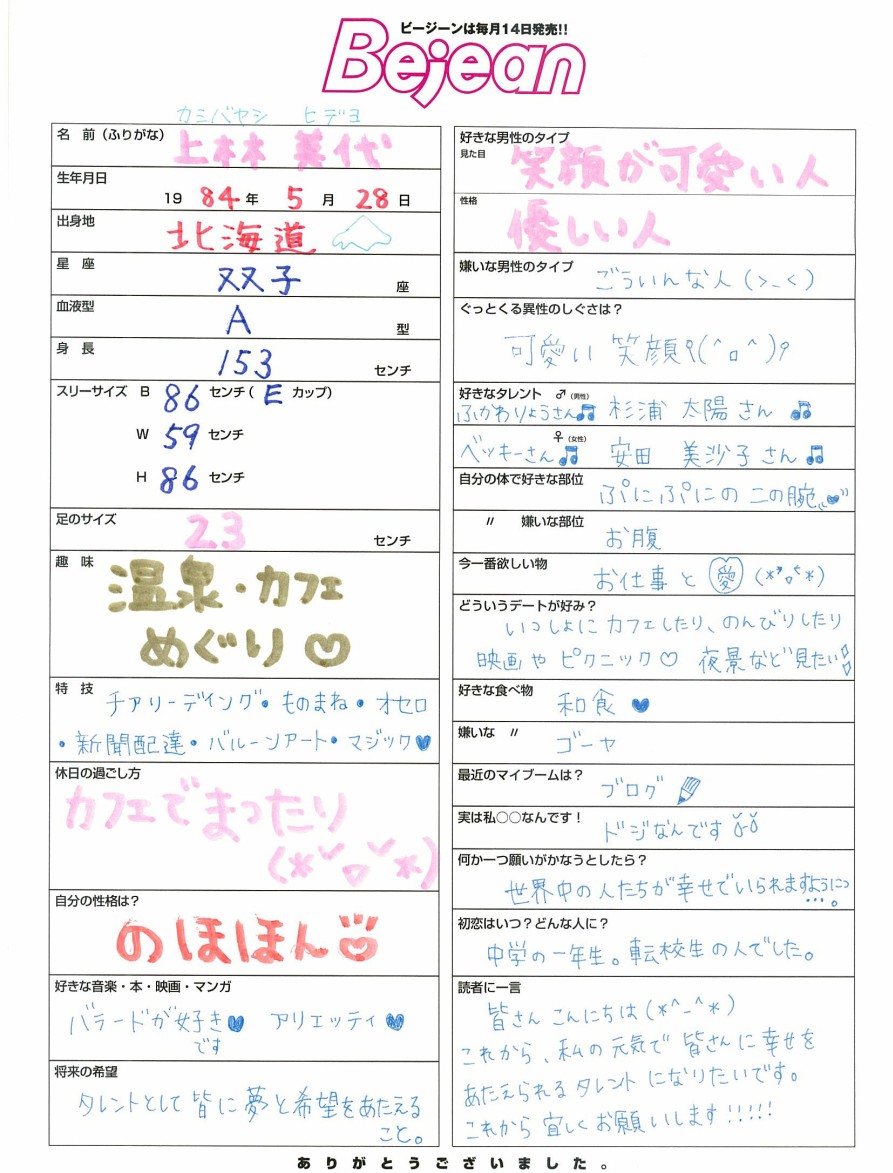 ビージーンは毎月14日発売!!
Bejean
カミバヤシ ヒデヨ
名 前 (ふりがな) 上林 英代
生年月日
19 84 年 5 月 28 日
出身地 北海道
星 座 双子 座
血液型 A 型
身 長 153 センチ
スリーサイズ B 86 センチ( E カップ)
W 59 センチ
H 86 センチ
足のサイズ 23 センチ
趣 味 温泉・カフェ
めぐり♡
特 技 チアリーディング・ものまね・オセロ
・新聞配達・バルーンアート・マジック♥
休日の過ごし方
カフェでまったり
(*ˇoˇ*)
自分の性格は?
のほほん
好きな音楽・本・映画・マンガ
バラードが好き♥ アリエッティ♥
です
将来の希望
タレントとして皆に夢と希望をあたえる
こと。
好きな男性のタイプ
見た目 笑顔が可愛い人
性格 優しい人
嫌いな男性のタイプ ごういんな人(>_<)
ぐっとくる異性のしぐさは?
可愛い 笑顔९(^o^)۶
好きなタレント ♂(男性)
ふかわりょうさん♫ 杉浦 太陽さん ♫
♀(女性)
ベッキーさん♫ 安田 美沙子さん♫
自分の体で好きな部位 ぷにぷにの 二の腕
〃 嫌いな部位 お腹
今一番欲しい物 お仕事と 愛 (*'o'*)
どういうデートが好み?
いっしょにカフェしたり、のんびりしたり
映画や ピクニック♡ 夜景など見たい
好きな食べ物 和食 ♥
嫌いな 〃 ゴーヤ
最近のマイブームは? ブログ
実は私〇〇なんです! ドジなんです
何か一つ願いがかなうとしたら?
世界中の人たちが幸せでいられますように
…。
初恋はいつ?どんな人に?
中学の一年生。転校生の人でした。
読者に一言
皆さん こんにちは(*^-^*)
これから、私の元気で 皆さんに幸せを
あたえられるタレントになりたいです。
これから 宜しくお願いします!!!!!
ありがとうございました。